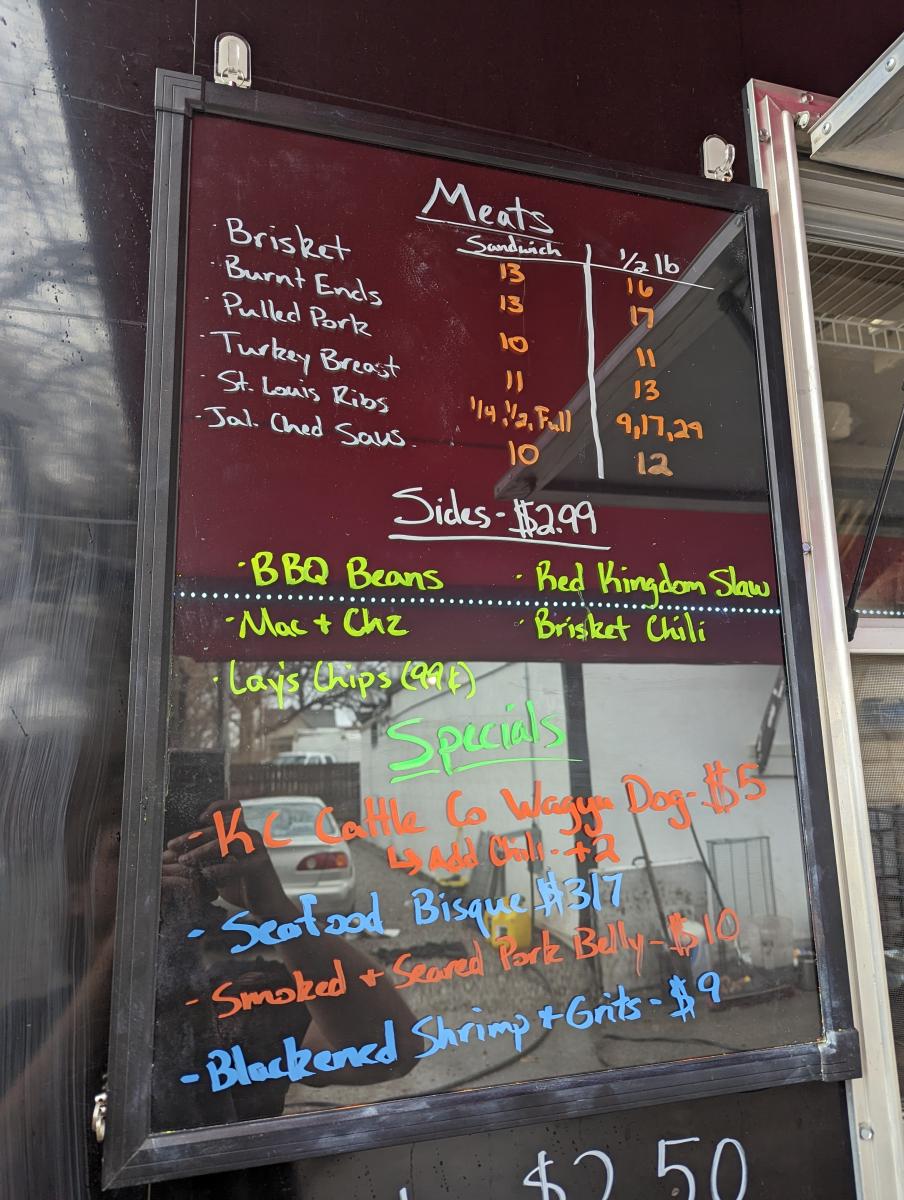 Meats
Sandwich 1/2 lb
· Brisket 13 16
· Burnt Ends 13 17
· Pulled Pork 10 11
· Turkey Breast 11 13
· St. Louis Ribs 1/4, 1/2, Full 9,17,29
· Jal. Ched Saus 10 12
Sides - $2.99
· BBQ Beans · Red Kingdom Slaw
· Mac + Chz · Brisket Chili
· Lay's Chips (99¢)
Specials
- KC Cattle Co Wagyu Dog - $5
↳ Add Chili - +2
- Seafood Bisque $3/7
- Smoked + Seared Pork Belly - $10
- Blackened Shrimp + Grits - $9
$2.50